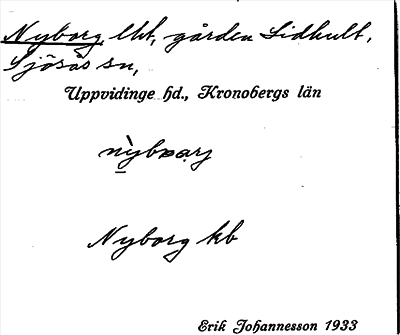 Nyborg lht, gården Lidhult,
Sjösås sn,
Uppvidinge hd., Kronobergs län
Nyborg kb
Erik Johannesson 1933